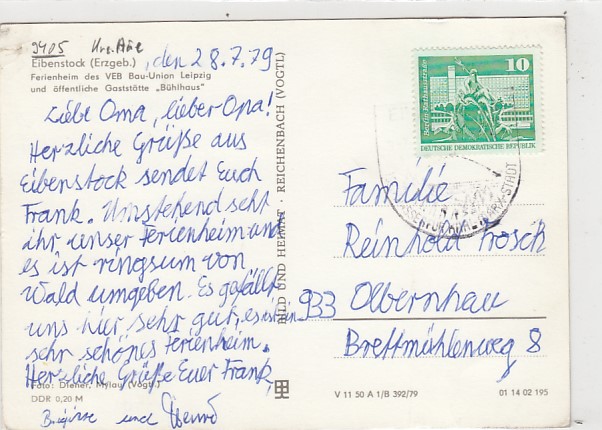 9405 Kr. Aue
Eibenstock (Erzgeb.)
, den 28.7.79
Ferienheim des VEB Bau-Union Leipzig
und öffentliche Gaststätte „Bühlhaus"
Liebe Oma, lieber Opa!
Herzliche Grüße aus
Eibenstock sendet Euch
Frank. Umstehend seht
ihr unser Ferienheim und
es ist ringsum von
Wald umgeben. Es gefällt
uns hier sehr gut, es ist ein
sehr schönes Ferienheim.
Herzliche Grüße Euer Frank
Foto: Diener, Mylau (Vogtl.)
DDR 0,20 M
und Bernd
BILD UND HEIMAT · REICHENBACH (VOGTL)
10
Berlin Rathausstraße
DEUTSCHE DEMOKRATISCHE REPUBLIK
Familie
Reinhold Frosch
933 Olbernhau
Brettmühlenweg 8
V 11 50 A 1/B 392/79
01 14 02 195